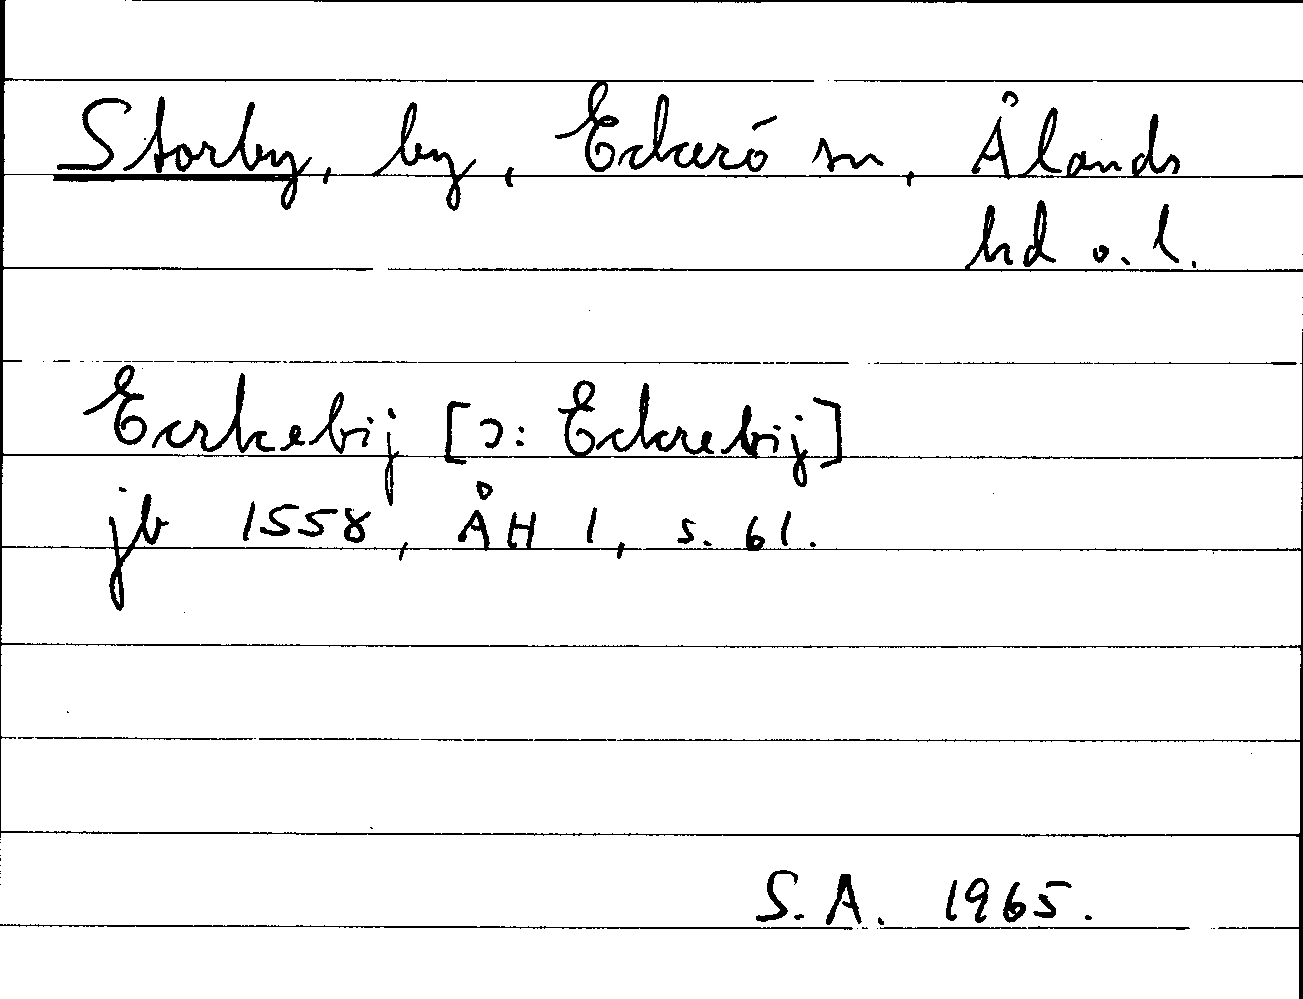 Storby, by, Eckerö sn, Ålands
hd o. l.
Ecrkebij [ɔ: Eckrebij]
jb 1558, ÅH 1, s. 61.
S.A. 1965.